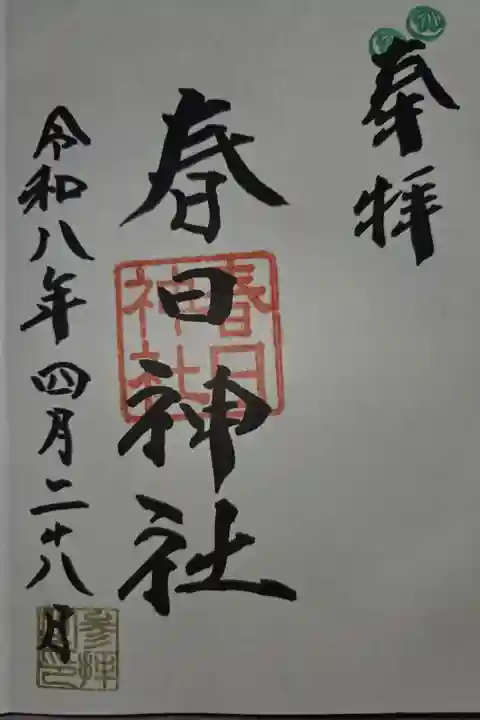 奉拝
春日神社
春日
神社
令和八年四月二十八日
参拝